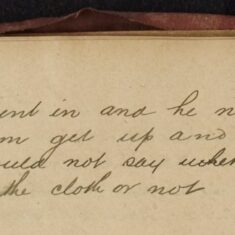 ent in and he n
m get up and
uld not say when
the cloth or not